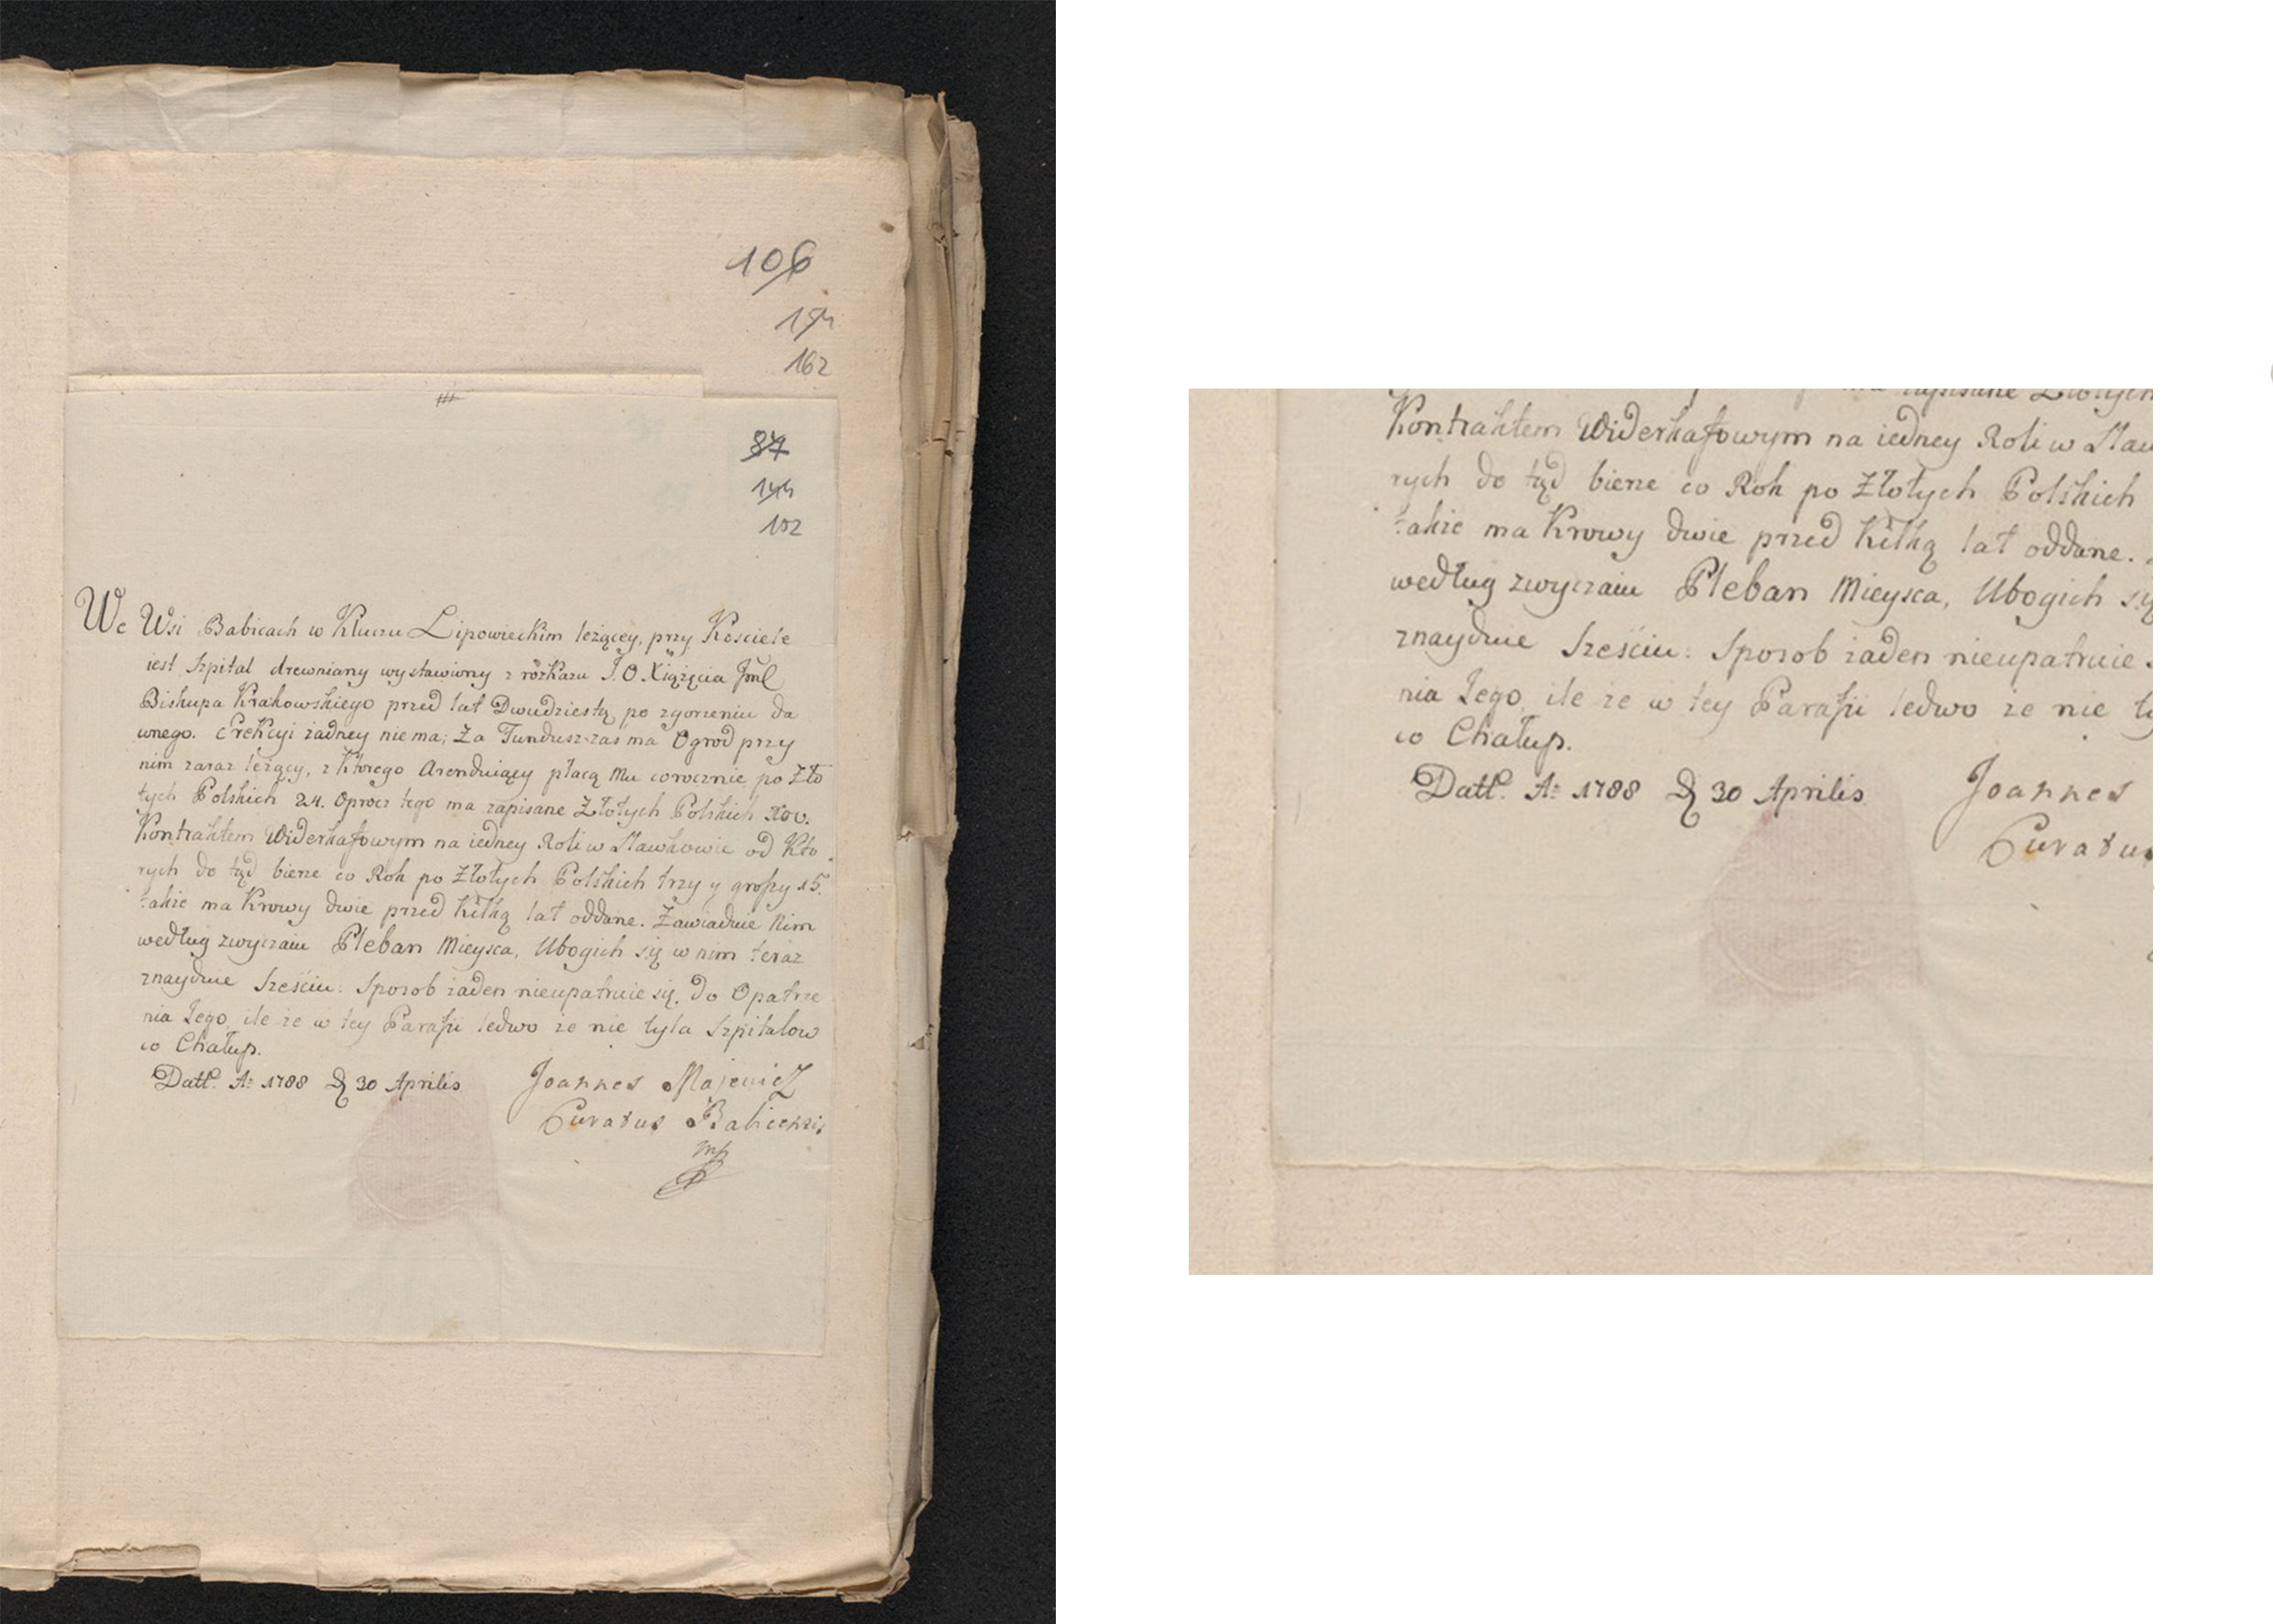 106
154
162
87
144
152
We Wsi Babicach w Kluczu Lipowieckim leżącey, przy Kościele
iest Szpital drewniany wystawiony z rozkazu J. O. Xiążęcia Jmci
Biskupa Krakowskiego przed lat Dwudziestą po zgorzeniu da
wnego. Erekcyi żadney nie ma; Za Fundusz zaś ma Ogrod przy
nim zaraz leżący, z ktorego Arenduiący płacą Mu corocznie po Zło
tych Polskich 24. Oprocz tego ma zapisane Złotych Polskich
Kontraktem Widerkafowym na iedney Roli w Sławkowie od Kto
rych do tąd bierze co Rok po Złotych Polskich trzy y groszy 15.
takze ma Krowy dwie przed kilką lat oddane. Zawiaduie Nim
według zwyczaiu Pleban Mieysca, Ubogich się w nim teraz
znayduie Sześciu: Sposob żaden nieupatruie się, do Opatrze
nia Jego, ile że w tey Parafii ledwo że nie tyla Szpitalow
co Chałup.
Datt. A: 1788 D 30 Aprilis
Joannes Majewicz
Curatus Babicensis
mp
Kontraktem Widerkafowym na iedney Roli w Sław
rych do tąd bierze co Rok po Złotych Polskich
takze ma Krowy dwie przed kilką lat oddane.
według zwyczaiu Pleban Mieysca, Ubogich się
znayduie Sześciu: Sposob żaden nieupatruie
nia Jego, ile że w tey Parafii ledwo że nie ty
co Chałup.
Datt. A: 1788 D 30 Aprilis
Joannes
Curatus